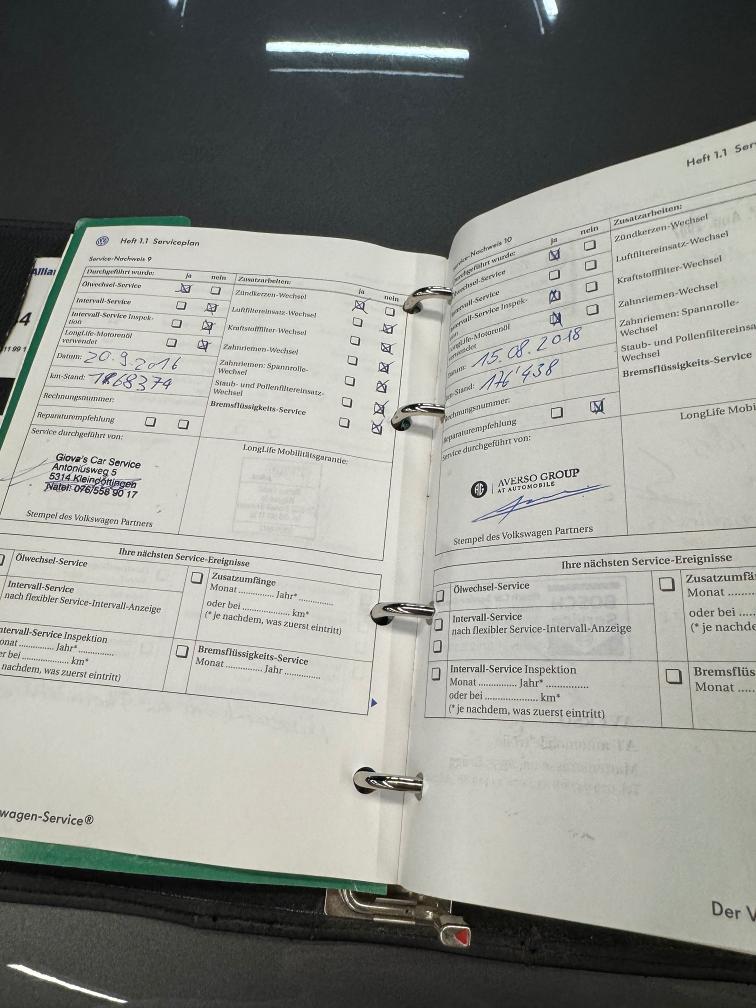 Heft 1.1 Serviceplan
Service-Nachweis 9
Durchgeführt wurde: ja nein
Ölwechsel-Service
Intervall-Service
Intervall-Service Inspek-
tion
LongLife-Motorenöl
verwendet
Datum: 20.9.2016
km-Stand:
Rechnungsnummer:
Reparaturempfehlung
Service durchgeführt von:
Giova's Car Service
Antoniusweg 5
5314 Kleindöttingen
Natel: 076/558 90 17
Stempel des Volkswagen Partners
Zusatzarbeiten: ja nein
Zündkerzen-Wechsel
Luftfiltereinsatz-Wechsel
Kraftstofffilter-Wechsel
Zahnriemen-Wechsel
Zahnriemen: Spannrolle-
Wechsel
Staub- und Pollenfiltereinsatz-
Wechsel
Bremsflüssigkeits-Service
LongLife Mobilitätsgarantie:
Ihre nächsten Service-Ereignisse
Ölwechsel-Service
Intervall-Service
nach flexibler Service-Intervall-Anzeige
ntervall-Service Inspektion
onat .............. Jahr* ..............
er bei .................... km*
nachdem, was zuerst eintritt)
Zusatzumfänge
Monat .............. Jahr* ..............
oder bei .................... km*
(* je nachdem, was zuerst eintritt)
Bremsflüssigkeits-Service
Monat .............. Jahr ..............
wagen-Service®
Heft 1.1 Ser
Service-Nachweis 10
Durchgeführt wurde: ja nein
Ölwechsel-Service
Intervall-Service
Intervall-Service Inspek-
LongLife-Motorenöl
verwendet
Datum: 15.08.2018
km-Stand: 176'438
Rechnungsnummer:
Reparaturempfehlung
Service durchgeführt von:
AVERSO GROUP
AT AUTOMOBILE
Stempel des Volkswagen Partners
Zusatzarbeiten:
Zündkerzen-Wechsel
Luftfiltereinsatz-Wechsel
Kraftstofffilter-Wechsel
Zahnriemen-Wechsel
Zahnriemen: Spannrolle-
Wechsel
Staub- und Pollenfiltereinsa
Wechsel
Bremsflüssigkeits-Service
LongLife Mobi
Ihre nächsten Service-Ereignisse
Ölwechsel-Service
Intervall-Service
nach flexibler Service-Intervall-Anzeige
Intervall-Service Inspektion
Monat .............. Jahr* ..............
oder bei .................... km*
(* je nachdem, was zuerst eintritt)
Zusatzumfä
Monat ..............
oder bei ........
(* je nachde
Bremsflüs
Monat ........
Der V